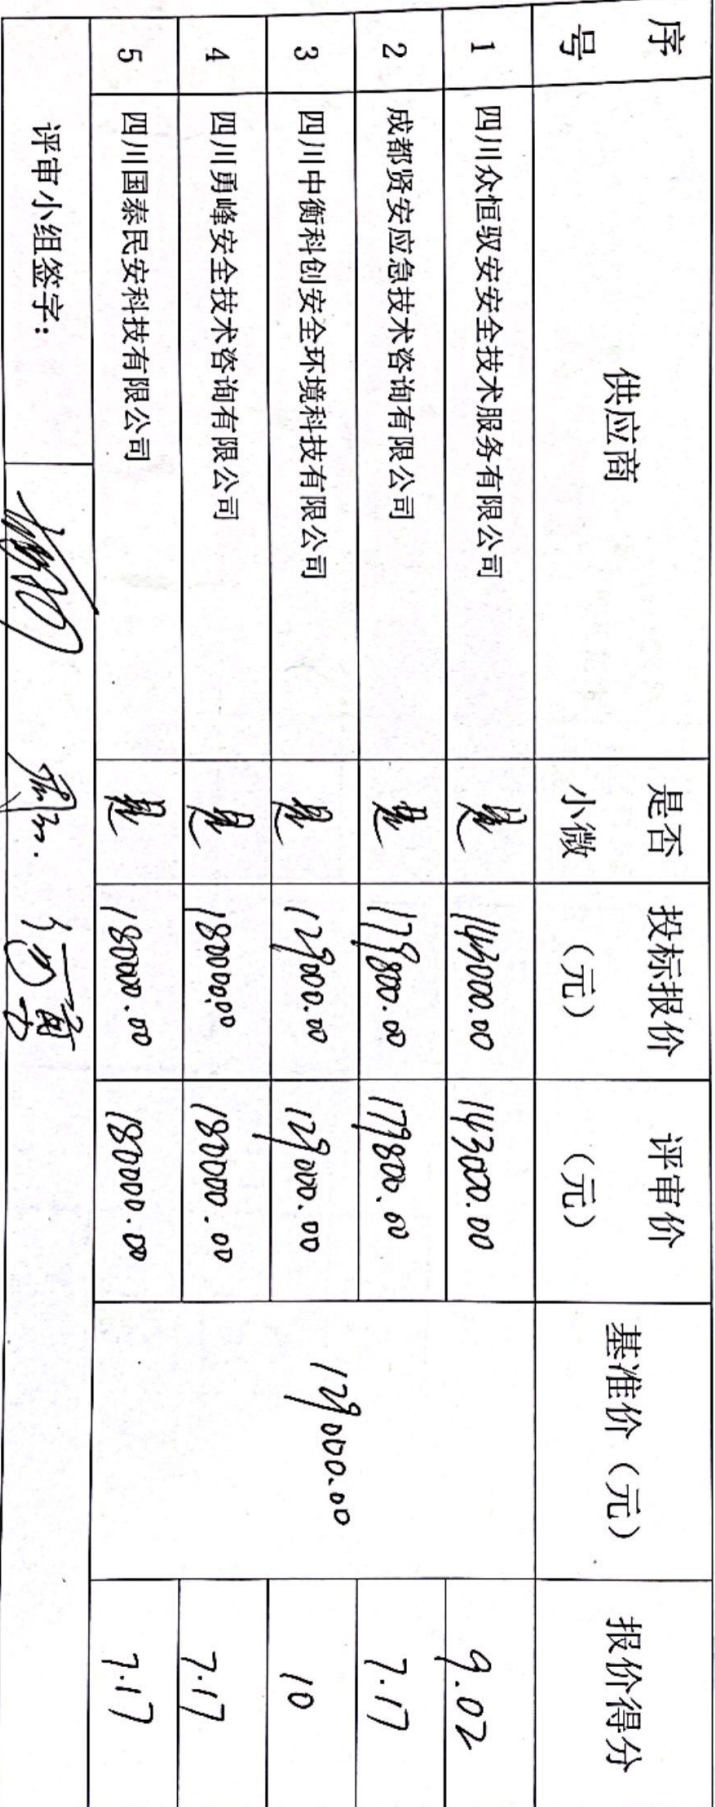 序号 供应商 是否小微 投标报价（元） 评审价（元） 基准价（元） 报价得分
1 四川众恒驭安安全技术服务有限公司 是 143000.00 143000.00 129000.00 9.02
2 成都贤安应急技术咨询有限公司 是 179800.00 179800.00 7.17
3 四川中衡科创安全环境科技有限公司 是 129000.00 129000.00 10
4 四川勇峰安全技术咨询有限公司 是 180000.00 180000.00 7.17
5 四川国泰民安科技有限公司 是 180000.00 180000.00 7.17
评审小组签字：